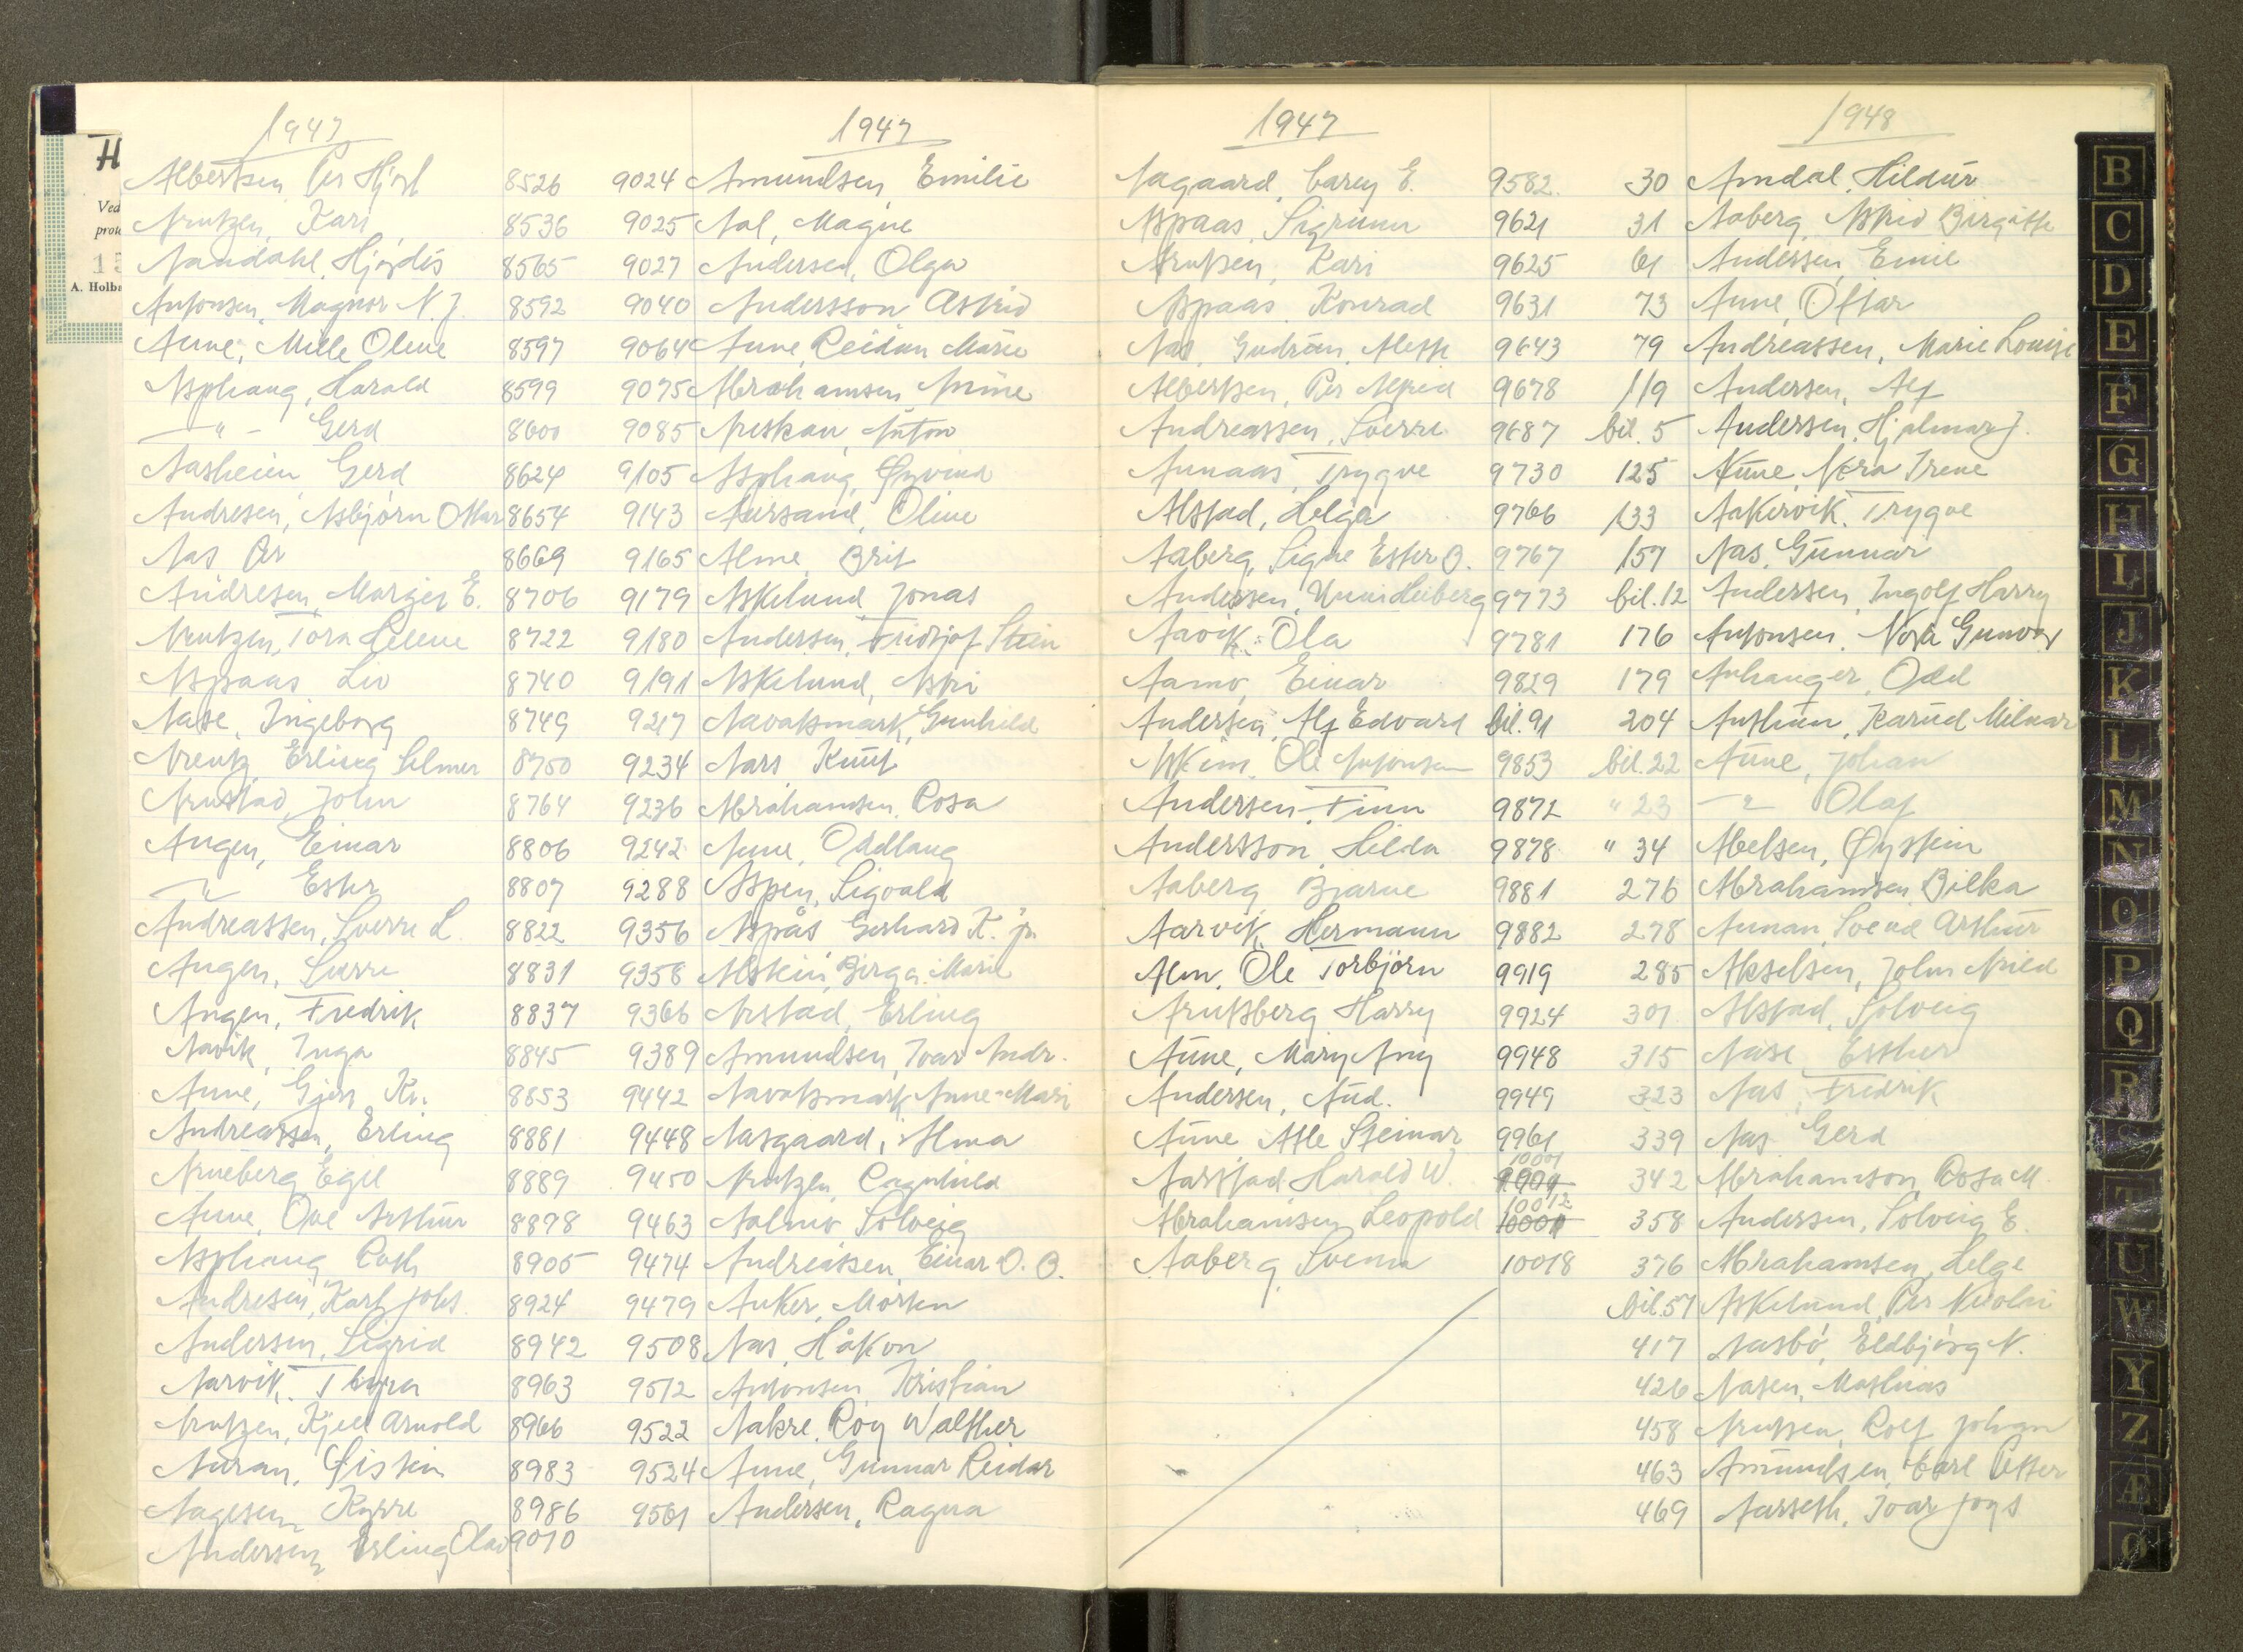 1947
Albertsen, Per Hjort 8526
Arntzen, Kari 8536
Aandahl, Hjørdis 8565
Antonsen, Magnor N. J. 8592
Aune, Mille Oline 8597
Asphaug, Harald 8599
—"— Gerd 8600
Aasheim, Gerd 8624
Andresen, Asbjørn Ottar 8654
Aas Per 8669
Andresen, Margit E. 8706
Arntzen, Tora Helene 8722
Aspaas Liv 8740
Aase, Ingeborg 8749
Arentz, Erling Selmer 8750
Arnstad, John 8764
Angen, Einar 8806
—"— Ester 8807
Andreassen, Sverre L. 8822
Angen, Sverre 8831
Angen, Fredrik 8837
Aavik, Inga 8845
Aune, Gjert Kr. 8853
Andreassen, Erling 8881
Arneberg Egil 8889
Aune, Ove Arthur 8898
Asphaug Ruth 8905
Andresen, Karl Johs. 8924
Andersen, Sigrid 8942
Aarvik, Thyra 8963
Arntzen, Kjell Arnold 8966
Auran, Øistein 8983
Aagesen, Kyrre 8986
Andersen, Erling Olav 9010
1947
9024 Amundsen, Emilie
9025 Aal, Magne
9027 Andersen, Olga
9040 Andersson Astrid
9064 Aune, Reidun Marie
9075 Abrahamsen Arne
9085 Areskau, Anton
9105 Asphaug, Øyvind
9143 Aursand, Oline
9165 Alme, Brit
9179 Askelund Jonas
9180 Andersen, Fridtjof Stein
9191 Askelund, Aski
9217 Aavatsmark, Gunhild
9234 Aars Knut
9236 Abrahamsen, Rosa
9242 Aune, Oddlaug
9288 Aspen, Sigvald
9356 Aspås Gerhard K. jr.
9358 Alskin, Birga Marie
9366 Arstad, Erling
9389 Amundsen, Ivar Andr.
9442 Aavatsmark Anne-Mari
9448 Aasgaard, Alma
9450 Arntzen Ragnhild
9463 Aalmo Solveig
9474 Andreassen, Einar O. B.
9479 Anker, Morten
9508 Aas, Håkon
9512 Antonsen, Kristian
9522 Aakre, Roy Walther
9524 Aune, Gunnar Reidar
9561 Andersen, Ragna
1947
Aagaard, Carey E. 9582.
Aspaas, Sigrunn 9621
Arntsen, Kari 9625
Aspaas, Konrad 9631
Aas, Gudrun, Alette 9643
Albertsen, Per Alfred 9678
Andreassen, Sverre 9687
Aunaas, Trygve 9730
Alstad, Helga 9766
Aaberg, Signe Ester B. 9767
Andersen, Unni Heiberg 9773
Aavik, Ola 9781
Aamo, Einar 9829
Andersen, Alf Edvard bil. 91
Askim, Ole Antonsen 9853
Andersen, Finn 9872
Andersson, Hilda 9878
Aaberg Bjarne 9881
Aarvik, Hermann 9882
Alm, Ole Torbjørn 9919
Arntsberg Harry 9924
Aune, Mary Any 9948
Andersen, Aud. 9949
Aune Atle Steinar 9961
Aarstad Harald W. 10001
Abrahamsen Leopold 10012
Aaberg Svenn 10018
1948
30 Amdal, Hildur
31 Aaberg, Astrid Birgitte
61 Andersen, Emil
73 Aune, Ottar
79 Andreassen, Marie Louise
119 Andersen, Alf
bil. 5 Andersen, Hjalmar J.
125 Aune, Vera Irene
133 Aakervik, Trygve
157 Aas, Gunnar
bil. 12 Andersen, Ingolf Harry
176 Antonsen, Nora Gunvor
179 Anhanger, Odd
204 Authun, Karud Milnar
bil. 22 Aune, Johan
" 23 —"— Olaf
" 34 Abelsen, Øystein
276 Abrahamsen, Bilka
278 Aunan, Svend Arthur
285 Akselsen, John Arild
301 Alstad, Solveig
315 Aase Esther
323 Aas, Fredrik
339 Aas Gerd
342 Abrahamson, Rosa M.
358 Andersen, Solveig E.
376 Abrahamsen, Helge
bil. 51 Askelund, Per Nicolai
417 Aasbø, Eldbjørg N.
426 Aasen, Mathias
458 Arntsen, Rolf Johan
463 Amundsen, Carl Petter
469 Aarseth, Ivar Johs
H
Ved
prote
15
A. Holb
B
C
D
E
F
G
H
I
J
K
L
M
N
O
P
Q
R
S
T
U
W
Y
Z
Æ
Ø